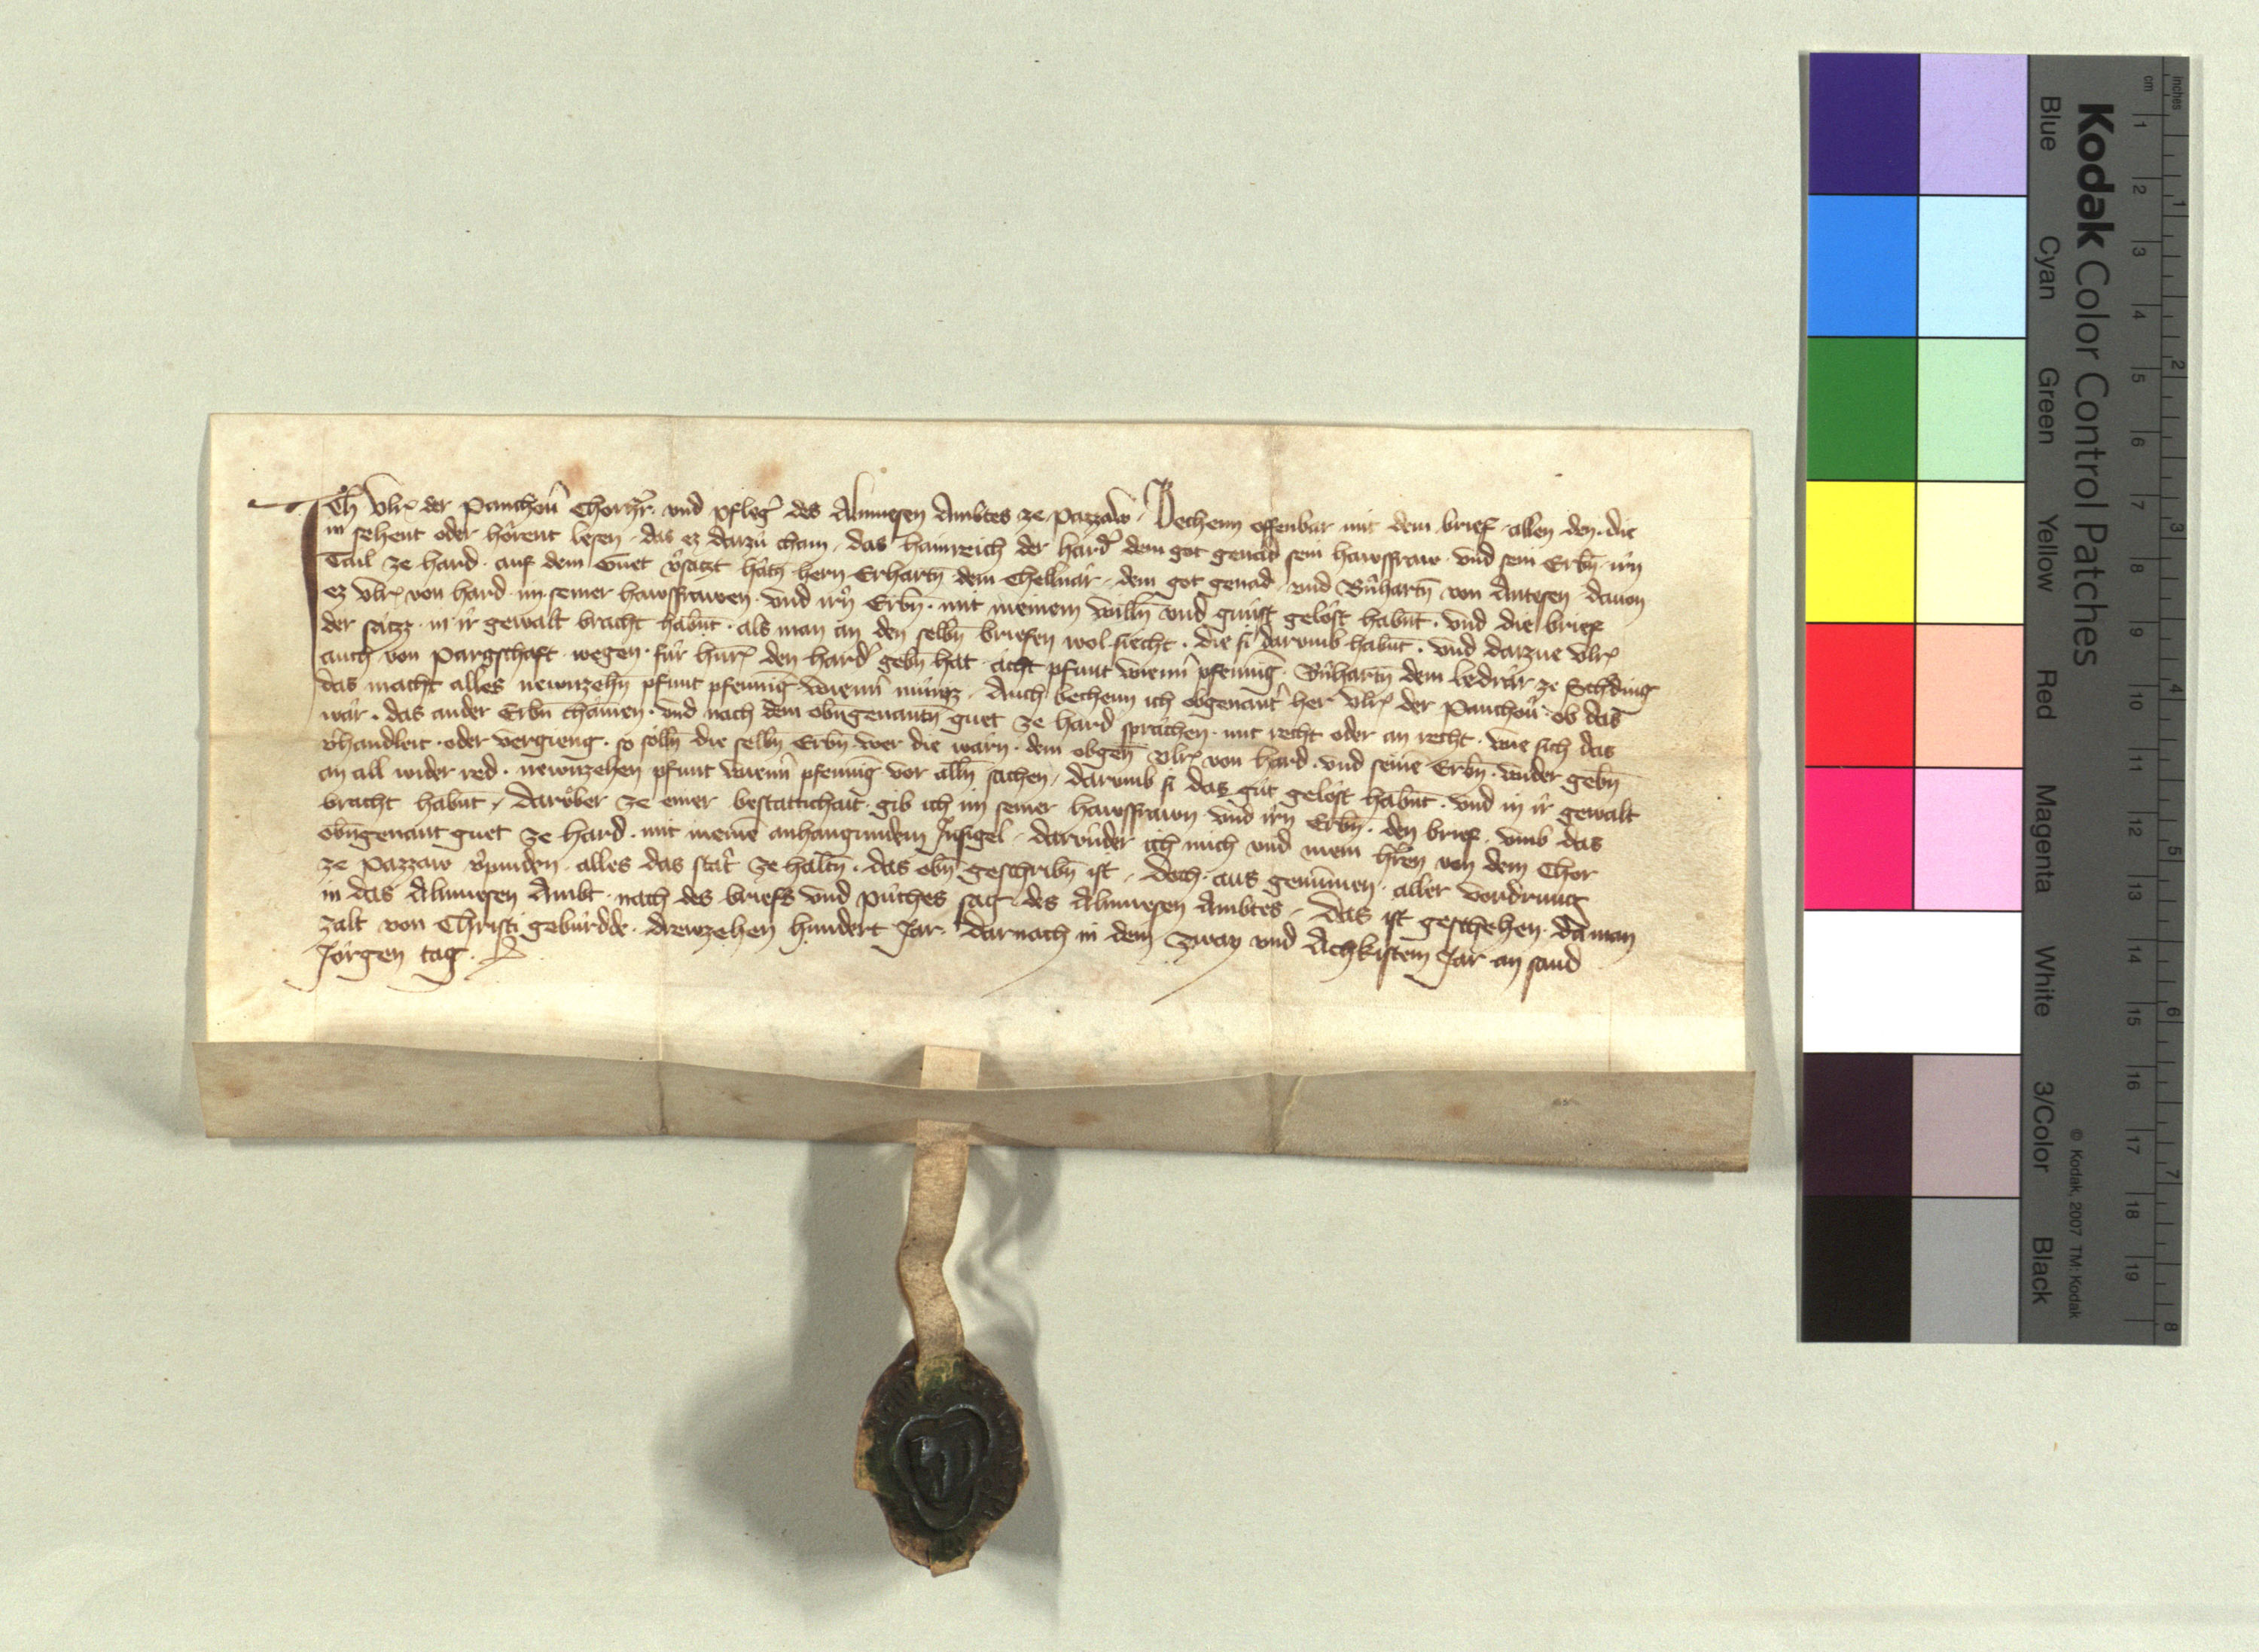 Ich Ulr̄ der Panchou̇ Chorhr̄r und Pfleg̉ des Almuesen Ambtes ze Pazzaw Bechenn offenbar mit dem brief allen den die
in sehent oder hörent lesen das ez darzu̇ cham das hainreich der hard̉ dem got genad sein hawsfraw und sein Erbn̄ irn
Tail ze hard auf dem Guet v̉satzt hatn̄ hern Erhartn̄ dem Chellnär dem got genad und Bu̇hartn̄ von Antesen dauon
ez Ulr̄ von hard im seiner hawsfrawen und irn Erbn̄ mit meinem willn̄ und gunst gelöst habnt̄ und die brief
der sätzz in ir gewalt bracht habnt̄ als man an den selbn̄ briefen wol siecht die si darumb habnt̄ und darzue Ulr̄
auch von Pürgschaft wegen für hnr̄ den hard̉ gebn̄ hat acht pfunt wienn̉ pfenniḡ Bu̇hartn̄ dem ledrär ze Schärding
das macht alles newnzehn̄ pfunt pfenniḡ wienn̉ münzz Auch bechenn ich obgenant̉ her Ulr̄ der Panchou̇ ob das
wär das ander Erbn̄ chämen und nach dem obn̄genantn̄ guet ze hard sprächen mit recht oder an recht wie sich das
v̉handleit oder vergieng so solln̄ die selbn̄ Erbn̄ wer die wärn dem obgen̄ Ulr̄ von hard und seinē Erbn̄ wider gebn̄
an all wider red newnzehen pfunt wienn̉ pfenniḡ vor alln̄ sachen darumb si daz gu̇t gelöst habnt̄ und in ir gewalt
bracht habnt̄ darüber ze einer bestättichait gib ich im seiner hawsfrawn und irn Erbn̄ den brief umb das
obn̄genant guet ze hard mit meinē anhangundem Insigel darunder ich mich und mein hr̄ren von dem Chor
ze Pazzaw v̉pinden alles das stät ze haltn̄ das obn̄ geschribn̄ ist doch aus genūmen aller vordrung
in das Almuesen Ambt nach des briefs und pu̇ches sag des Almuesen Ambtes Das ist geschehen da man
zalt von Christi gebürdde drewzehen hundert Jar darnach in dem zway und Achkistem Jar an sand
Jörgen tag
Kodak Color Control Patches
Blue Cyan Green Yellow Red Magenta White 3/Color Black
© Kodak, 2007 TM: Kodak
inches
cm
1 2 3 4 5 6 7 8 9 10 11 12 13 14 15 16 17 18 19
1 2 3 4 5 6 7 8